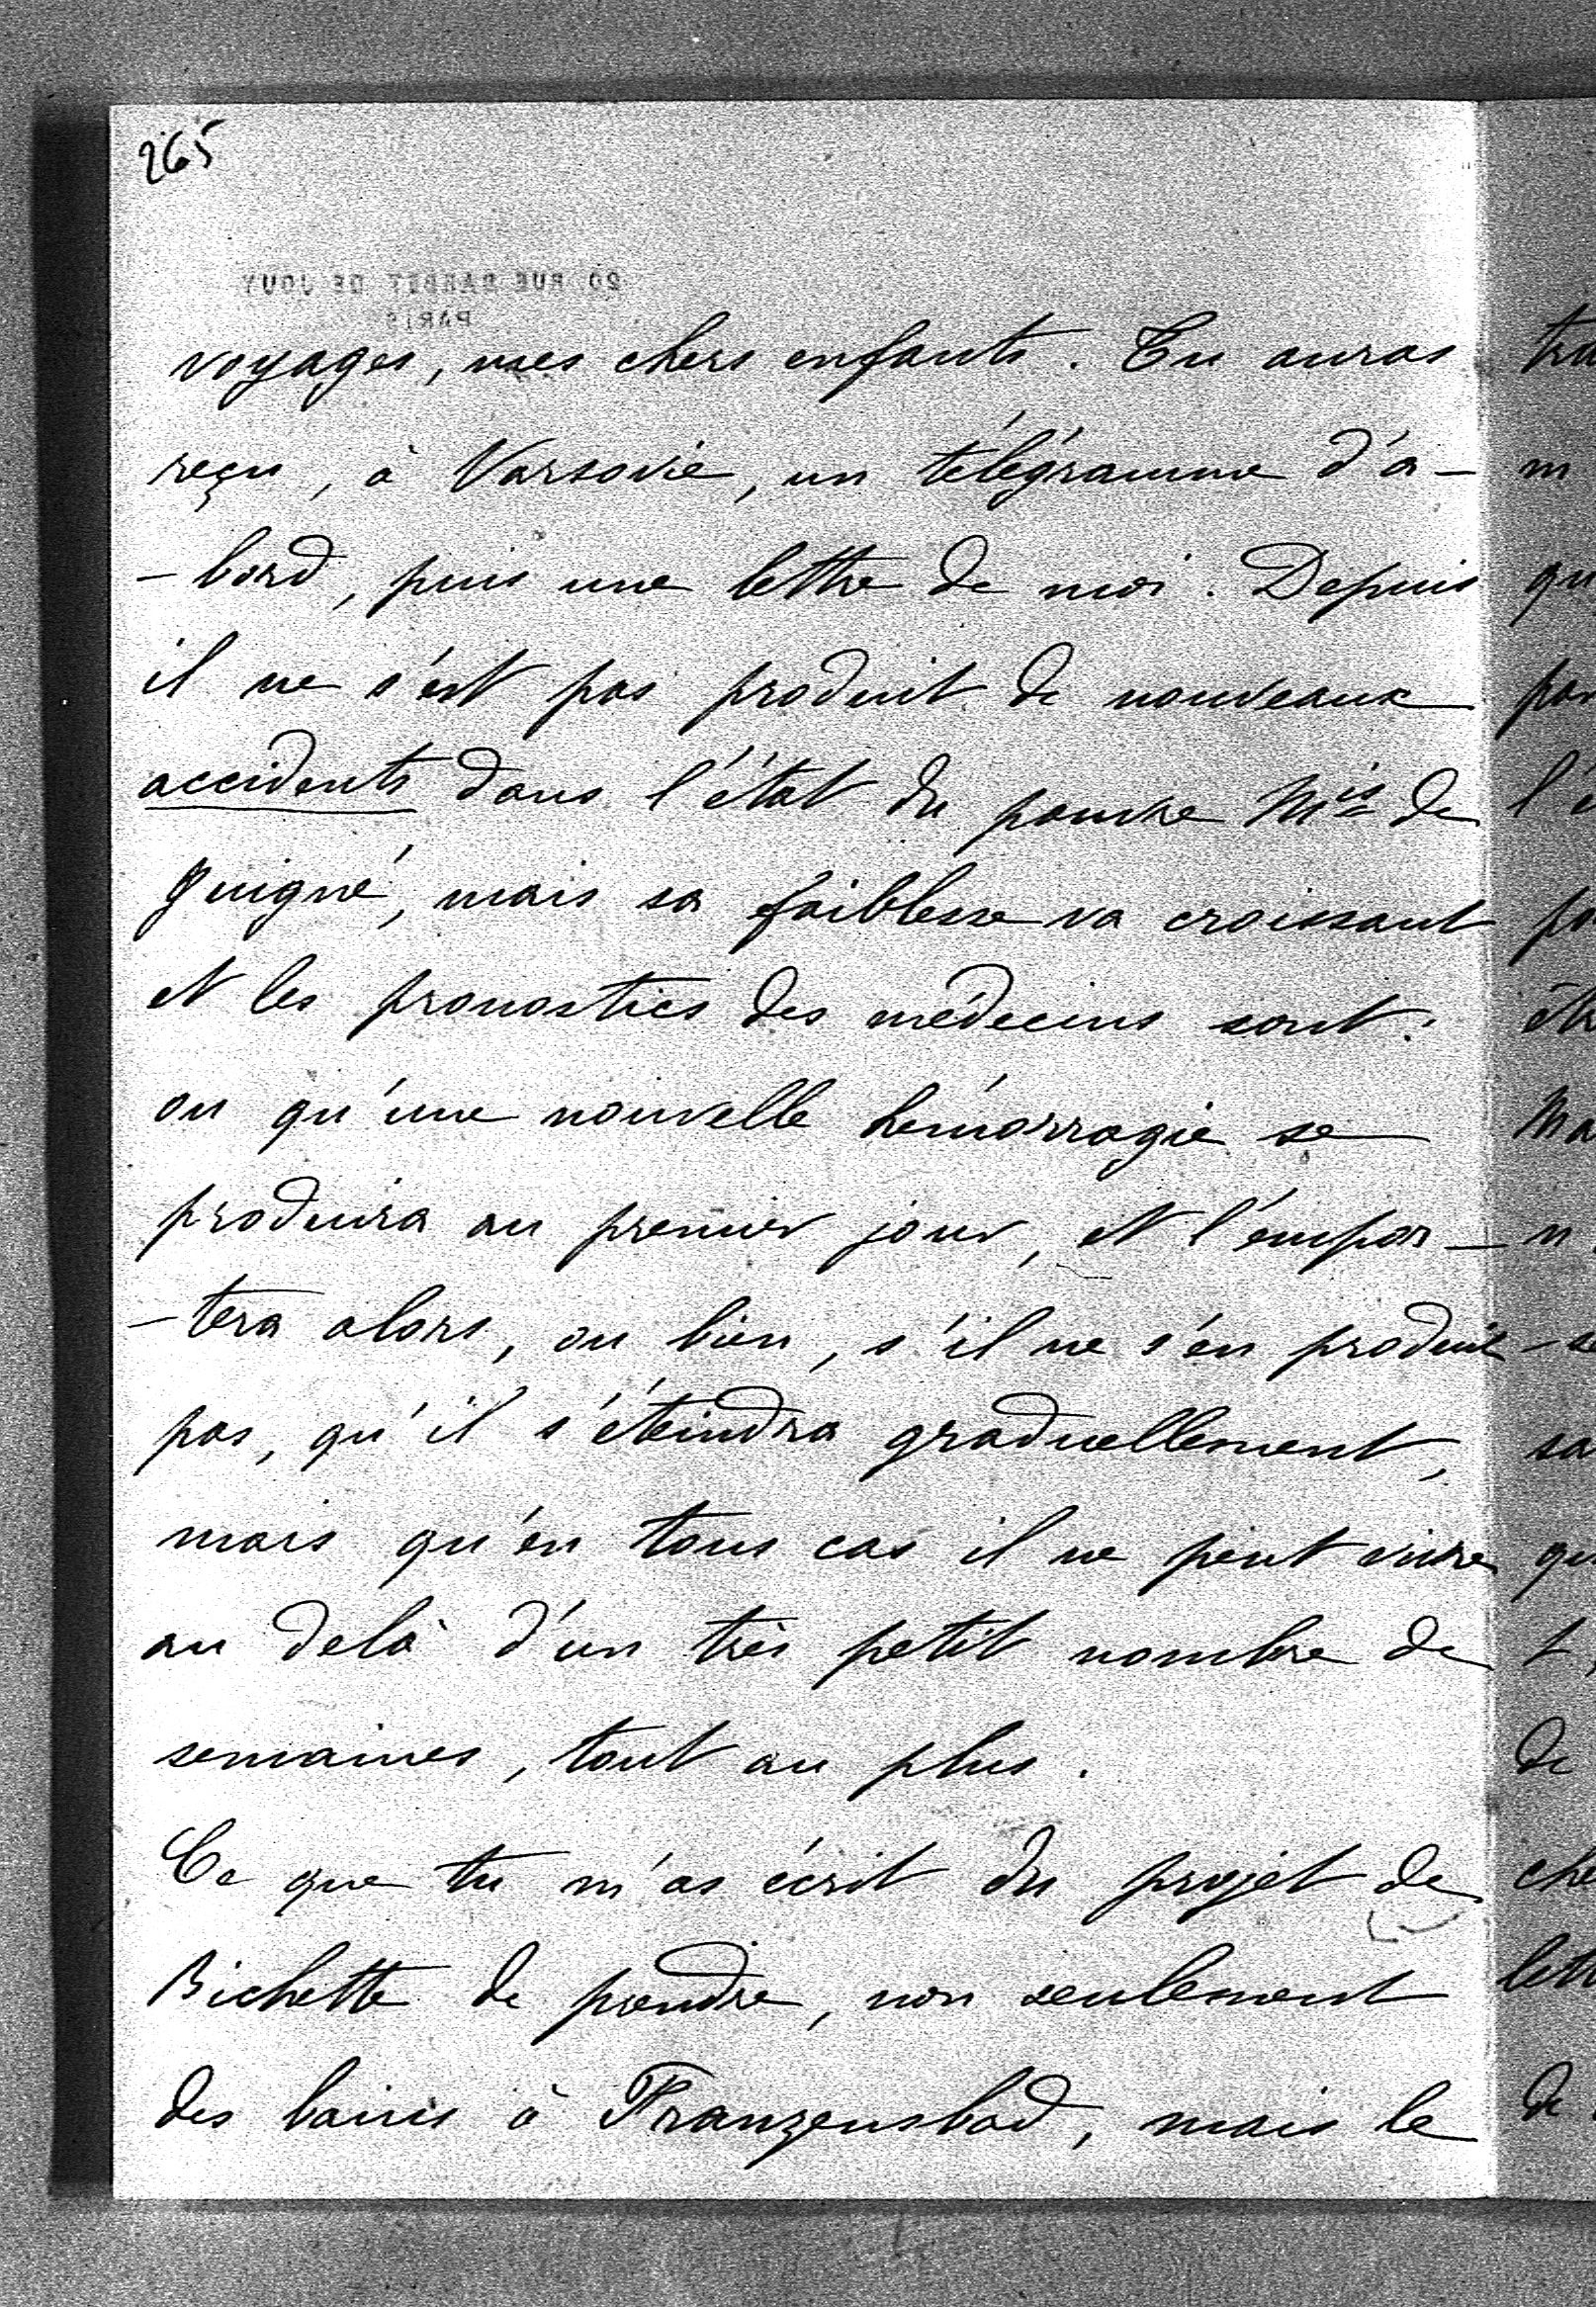 265
20 RUE BARBET DE JOUY
PARIS
voyages, mes chers enfants. Tu auras
reçu, à Varsovie, un télégramme d'a-
-bord, puis une lettre de moi. Depuis
il ne s'est pas produit de nouveaux
accidents dans l'état du pauvre Mis de
Guigné, mais sa faiblesse va croissant
et les pronostics des médecins sont:
ou qu'une nouvelle hémorragie se
produira au premier jour, et l'empor-
-tera alors, ou bien, s'il ne s'en produit
pas, qu'il s'éteindra graduellement,
mais qu'en tous cas il ne peut vivre
au delà d'un très petit nombre de
semaines, tout au plus.
Ce que tu m'as écrit du projet de
Bichette de prendre, non seulement
des bains à Franzensbad, mais le